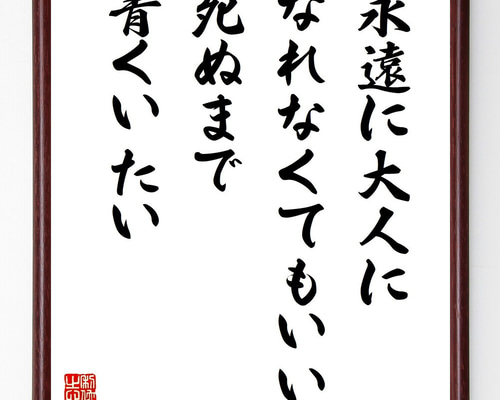 永遠に大人に
なれなくてもいい
死ぬまで
青くいたい